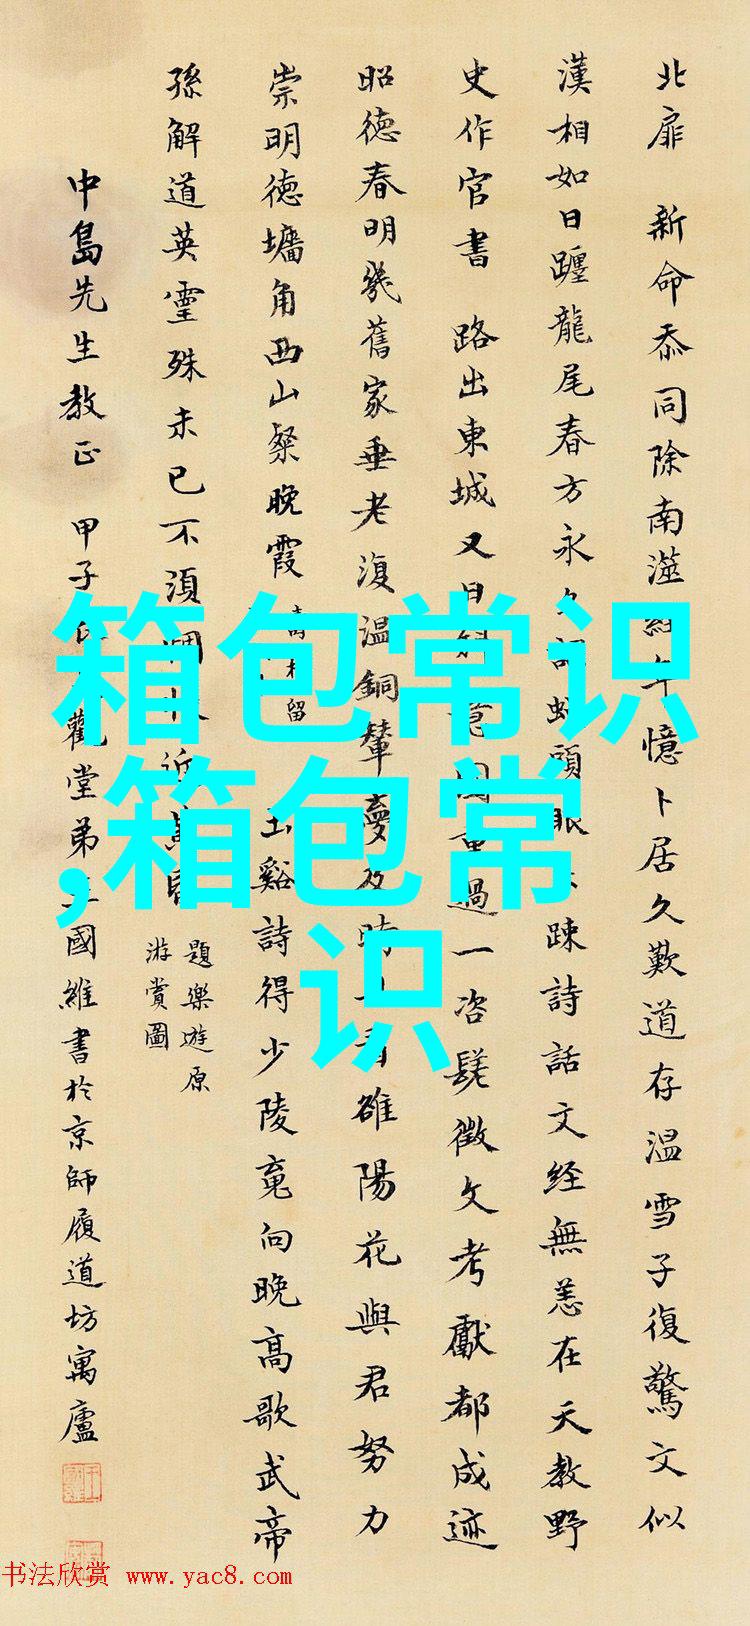 北扉 新命忝同除南澨經年憶卜居久歎道存温雪子復驚文似
漢相如日躔龍尾春方永 頭眼 疎詩話文經無恙在天教野
史作官書 路出東城又日斜 過一咨嗟徵文考獻都成迹
昭德春明幾舊家垂老復温銅輦夢及時 看雒陽花與君努力
崇明德墉角西山粲晚霞 留 玉谿詩得少陵意向晚高歌武帝
孫解道英靈殊未已不須惆悵近黄昏
題樂遊原
游賞圖
中島先生教正 甲子 觀堂弟王國維書於京師履道坊寓廬
箱包常识
,箱包常
识
书法欣赏 www.yac8.com